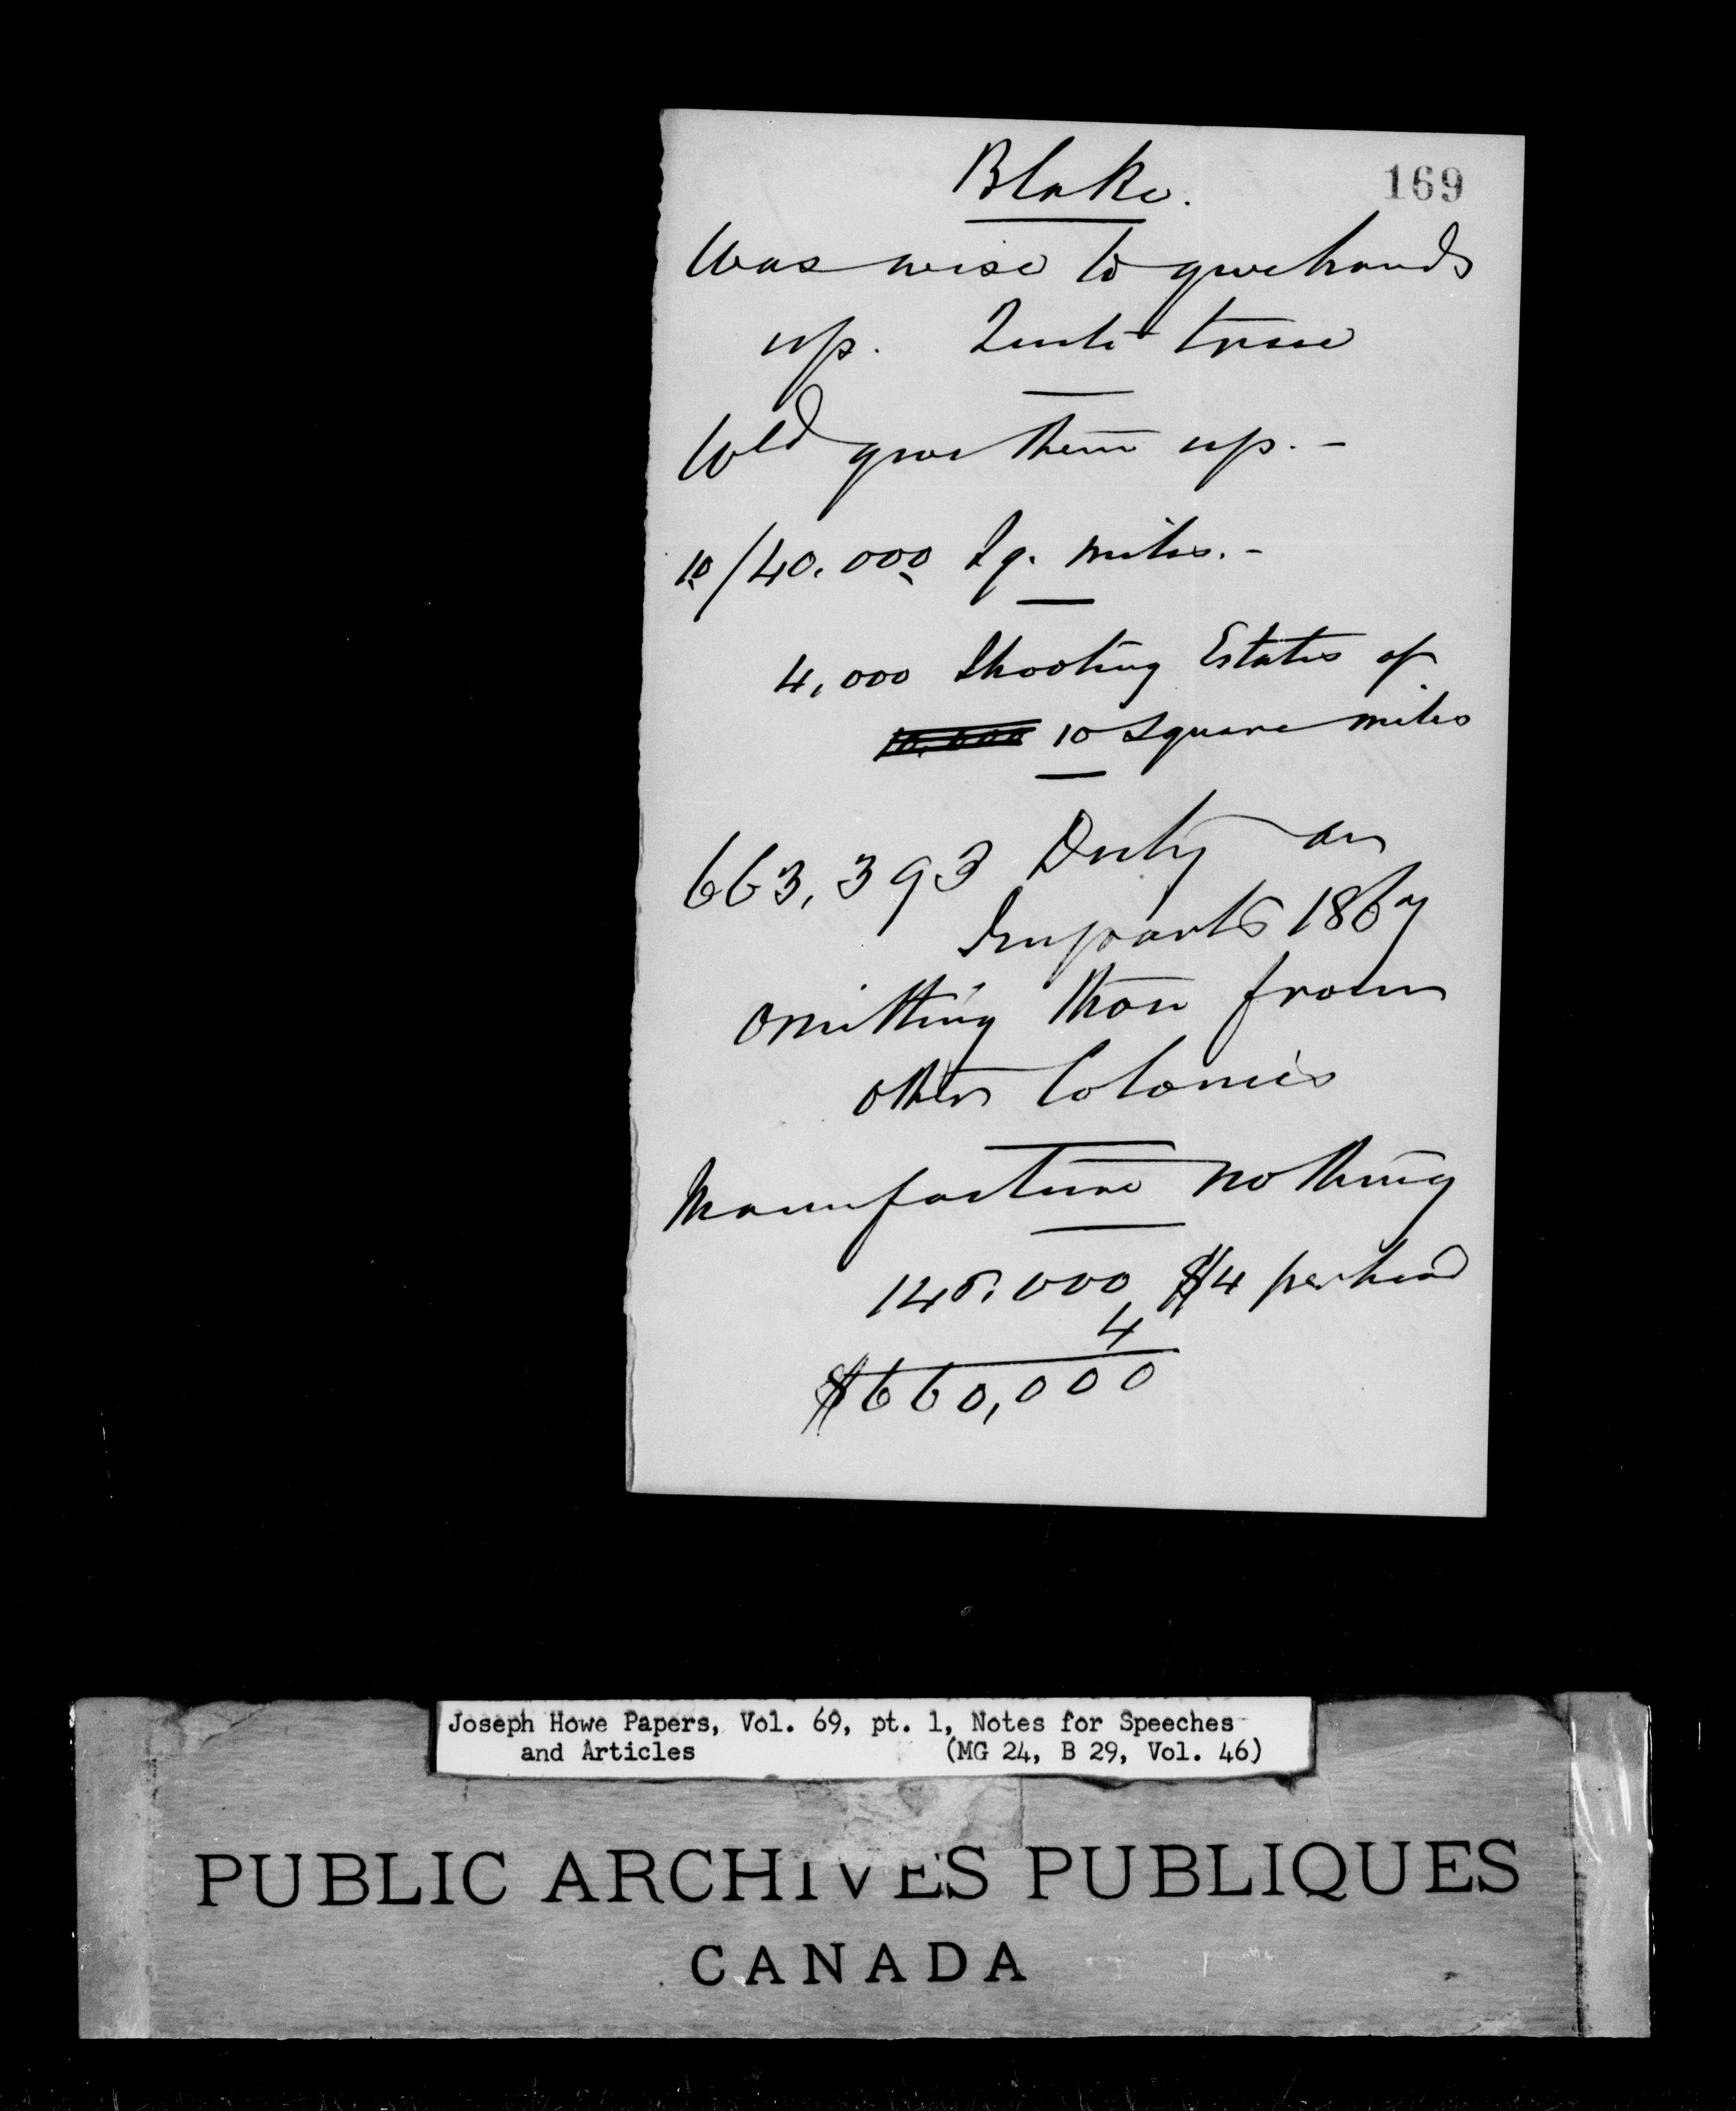 169
Blake.
Was wise to give hands
up. Quite true
Wld give them up. -
10/40.000 Sq. miles. -
4,000 Shooting Estates of
10,000 10 Square miles
663,393 Duty on
Imports 1867
omitting those from
other Colonies
Manufacture nothing
145.000 $4 per head
4
$660,000
Joseph Howe Papers, Vol. 69, pt. 1, Notes for Speeches
and Articles (MG 24, B 29, Vol. 46)
PUBLIC ARCHIVES PUBLIQUES
CANADA